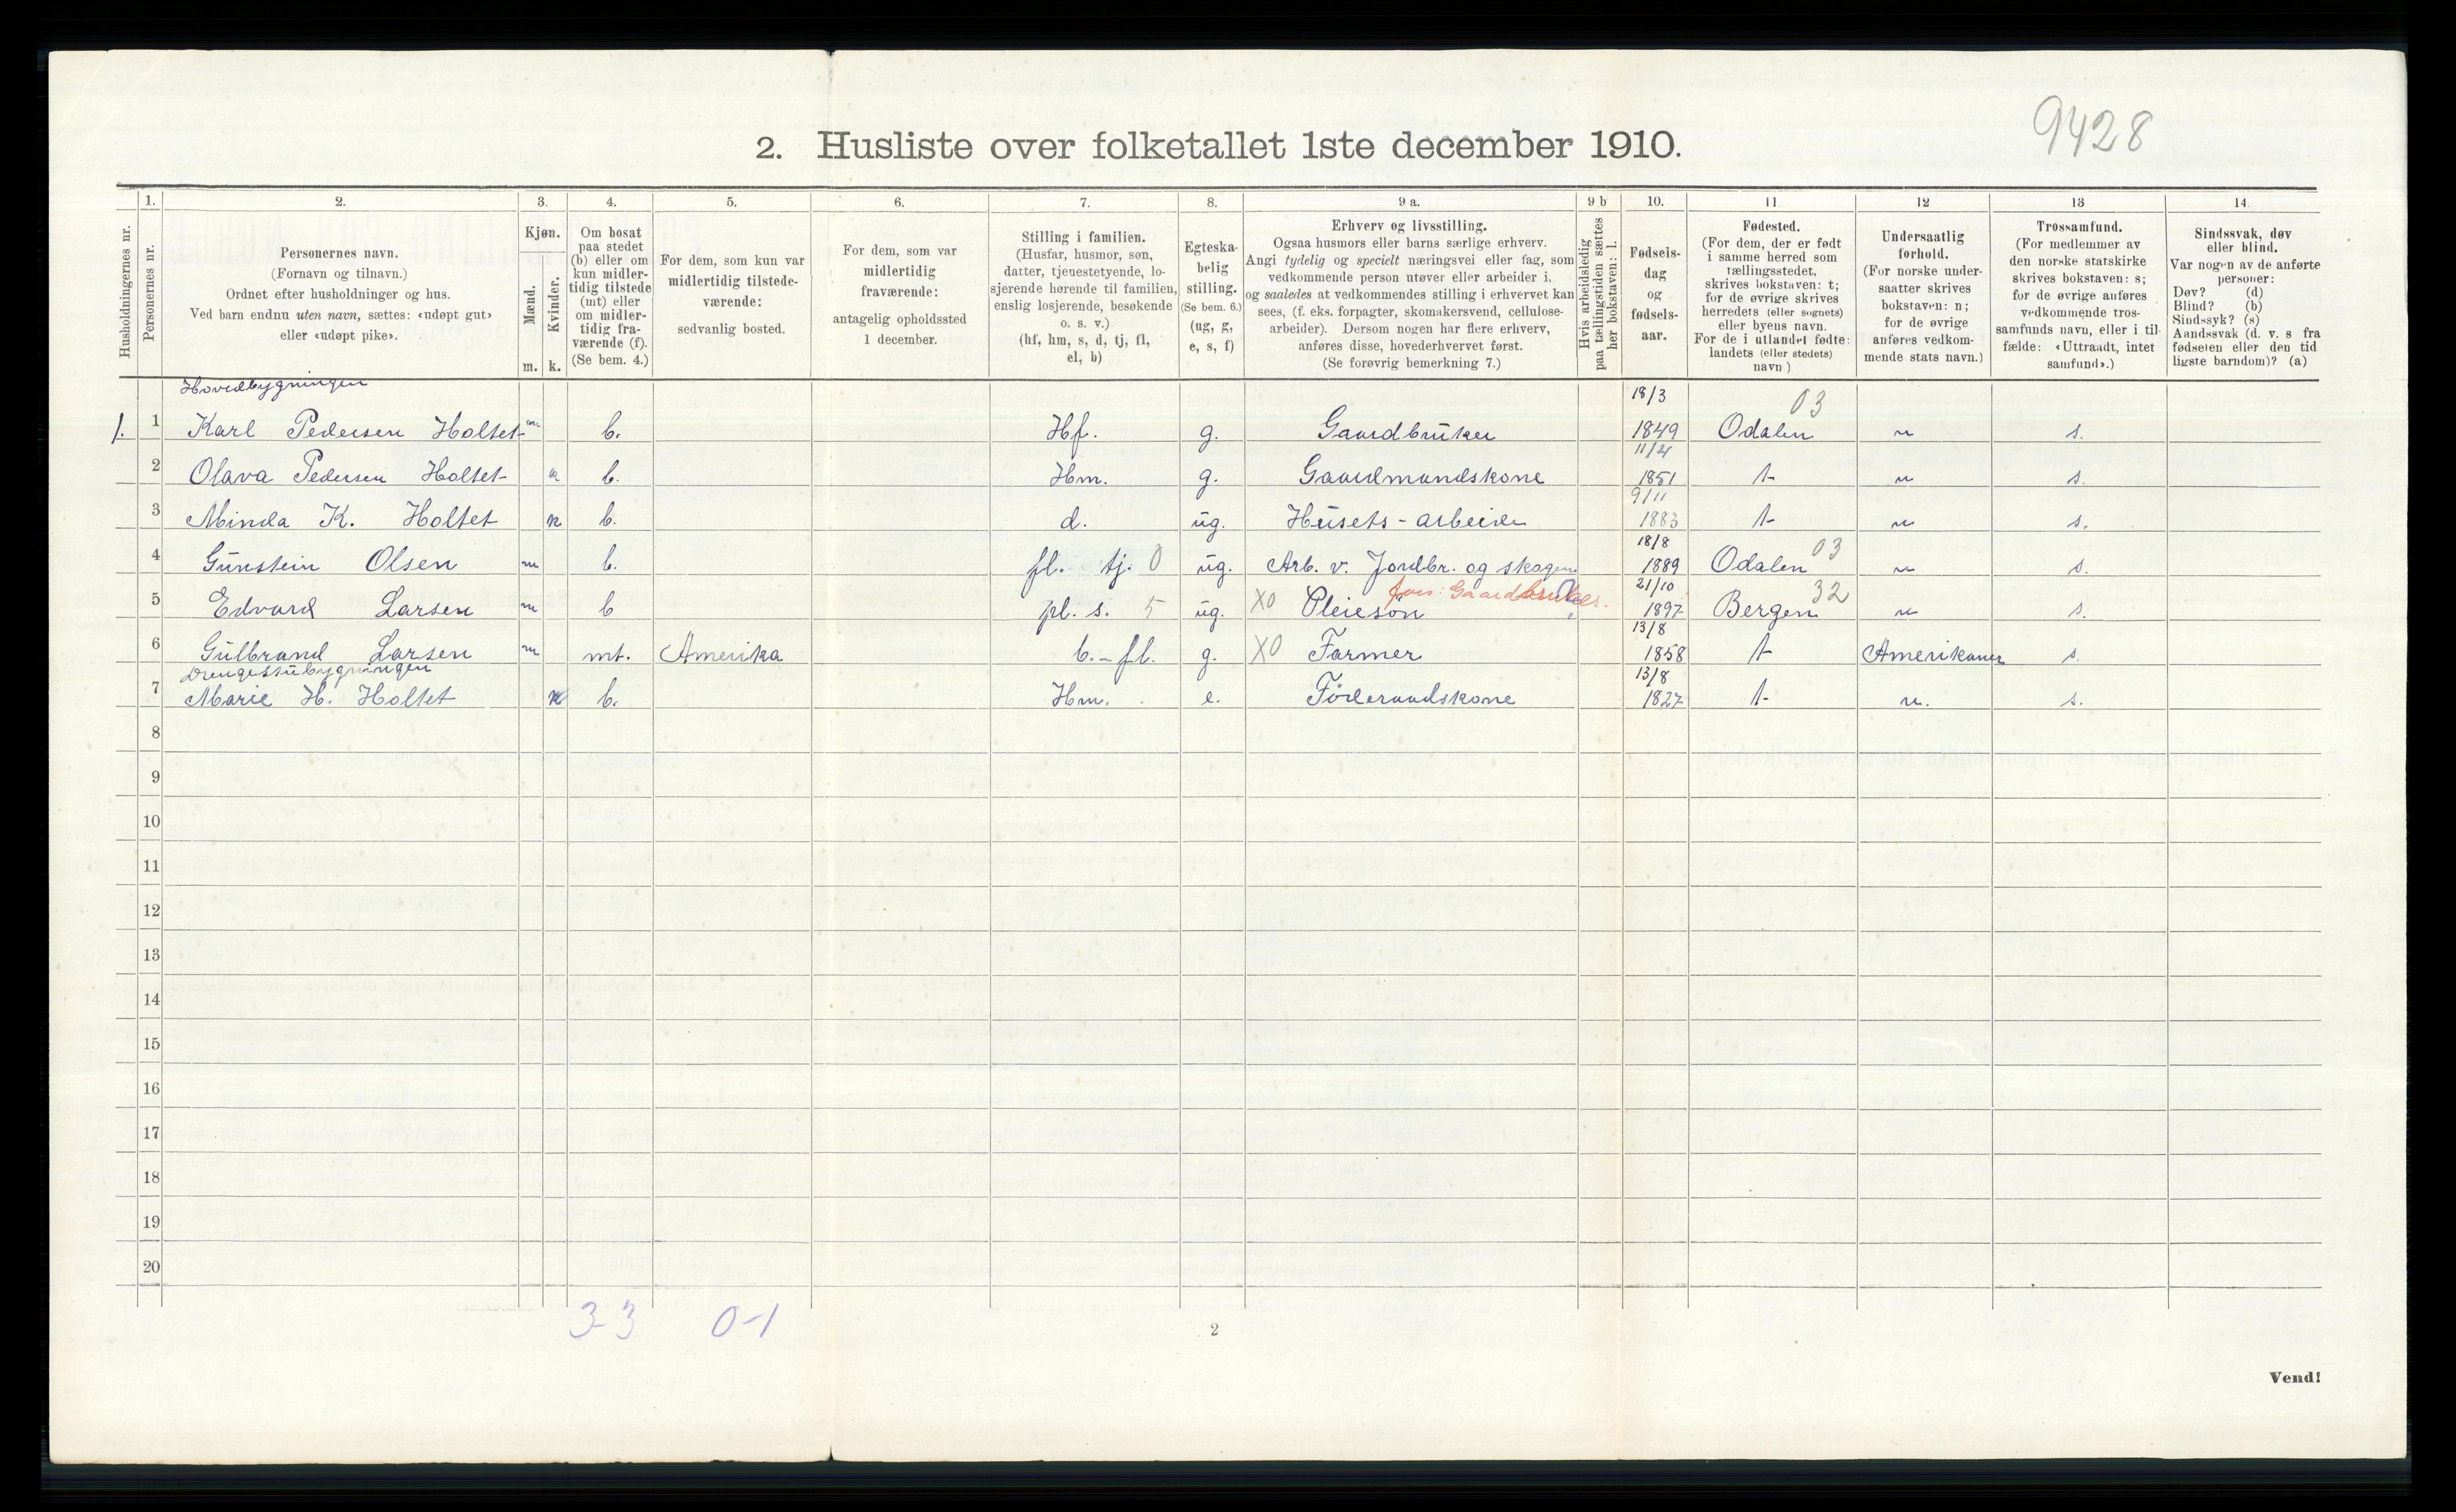 9428
2. Husliste over folketallet 1ste december 1910.
Husholdningernes nr.
1.
Personernes nr.
2.
Personernes navn.
(Fornavn og tilnavn.)
Ordnet efter husholdninger og hus.
Ved barn endnu uten navn, sættes: «udøpt gut»
eller «udøpt pike».
3.
Kjøn.
Mænd.
Kvinder.
m. k.
4.
Om bosat
paa stedet
(b) eller om
kun midler-
tidig tilstede
(mt) eller
om midler-
tidig fra-
værende (f).
(Se bem. 4.)
5.
For dem, som kun var
midlertidig tilstede-
værende:
sedvanlig bosted.
6.
For dem, som var
midlertidig
fraværende:
antagelig opholdssted
1 december.
7.
Stilling i familien.
(Husfar, husmor, søn,
datter, tjenestetyende, lo-
sjerende hørende til familien,
enslig losjerende, besøkende
o. s. v.)
(hf, hm, s, d, tj, fl,
el, b)
8.
Egteska-
belig
stilling.
(Se bem. 6.)
(ug, g,
e, s, f)
9 a.
Erhverv og livsstilling.
Ogsaa husmors eller barns særlige erhverv.
Angi tydelig og specielt næringsvei eller fag, som
vedkommende person utøver eller arbeider i,
og saaledes at vedkommendes stilling i erhvervet kan
sees, (f. eks. forpagter, skomakersvend, cellulose-
arbeider). Dersom nogen har flere erhverv,
anføres disse, hovederhvervet først.
(Se forøvrig bemerkning 7.)
9 b
Hvis arbeidsledig
paa tællingstiden sættes
her bokstaven: l.
10.
Fødsels-
dag
og
fødsels-
aar.
11
Fødested.
(For dem, der er født
i samme herred som
tællingsstedet,
skrives bokstaven: t;
for de øvrige skrives
herredets (eller sognets)
eller byens navn.
For de i utlandet fødte:
landets (eller stedets)
navn)
12
Undersaatlig
forhold.
(For norske under-
saatter skrives
bokstaven: n;
for de øvrige
anføres vedkom-
mende stats navn.)
13
Trossamfund.
(For medlemmer av
den norske statskirke
skrives bokstaven: s;
for de øvrige anføres
vedkommende tros-
samfunds navn, eller i til-
fælde: «Uttraadt, intet
samfund».)
14
Sindssvak, døv
eller blind.
Var nogen av de anførte
personer:
Døv? (d)
Blind? (b)
Sindssyk? (s)
Aandssvak (d. v. s fra
fødselen eller den tid
ligste barndom)? (a)
Hovedbygningen
1. 1 Karl Pedersen Holtet m b. Hf. g. Gaardbruker 18/3 1849 Odalen 03 n s.
2 Olava Pedersen Holtet b. Hm. g. Gaardmandskone 11/4 1851 t n s.
3 Minda K. Holtet k b. d. ug. Husets-arbeide 9/11 1883 t n s.
4 Gunstein Olsen m b. fl. tj. 0 ug. Arb. v. Jordbr. og skogen 18/8 1889 Odalen 03 n s.
5 Edvard Larsen m b pl. s. 5 ug. X0 Pleiesön fors: Gaardbruker. 21/10 1897 Bergen 32 n s.
6 Gulbrand Larsen m mt. Amerika b.-fl. g. X0 Farmer 13/8 1858 t Amerikaner s.
Drengestubygningen
7 Marie H. Holtet k b. Hm. e. Föderaadskone 13/8 1827 t n. s.
8
9
10
11
12
13
14
15
16
17
18
19
20
3-3 0-1
2
Vend!